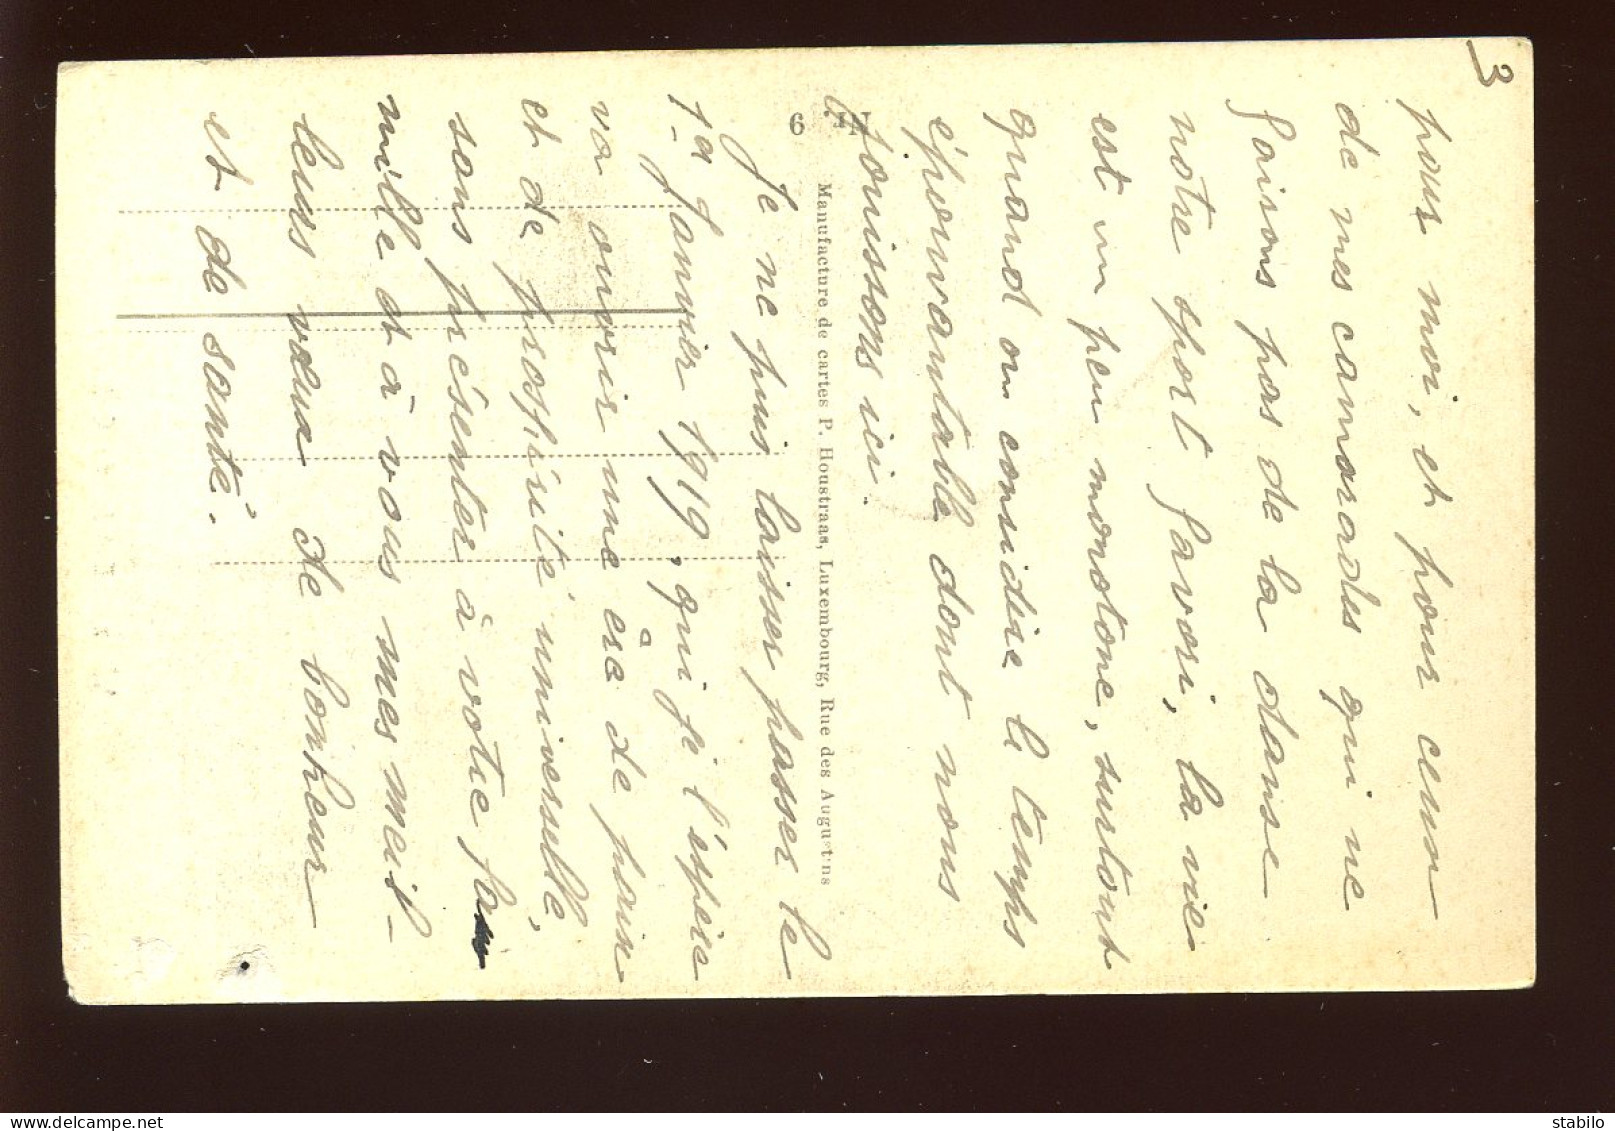 3
pour moi, et pour ceux
de mes camarades qui ne
faisons pas de la danse
notre sport favori, la vie
est un peu monotone, surtout
quand on considère le temps
épouvantable dont nous
jouissons ici.
Je ne puis laisser passer le
1er Janvier 1919, qui je l'espère
va ouvrir une ère de paix
à
et de prospérité universelle,
sans présenter à votre fa
mille et à vous mes meil-
leurs vœux de bonheur
et de santé.
Nr. 6
Manufacture de cartes P. Houstraas, Luxembourg, Rue des Augustins
stabilo